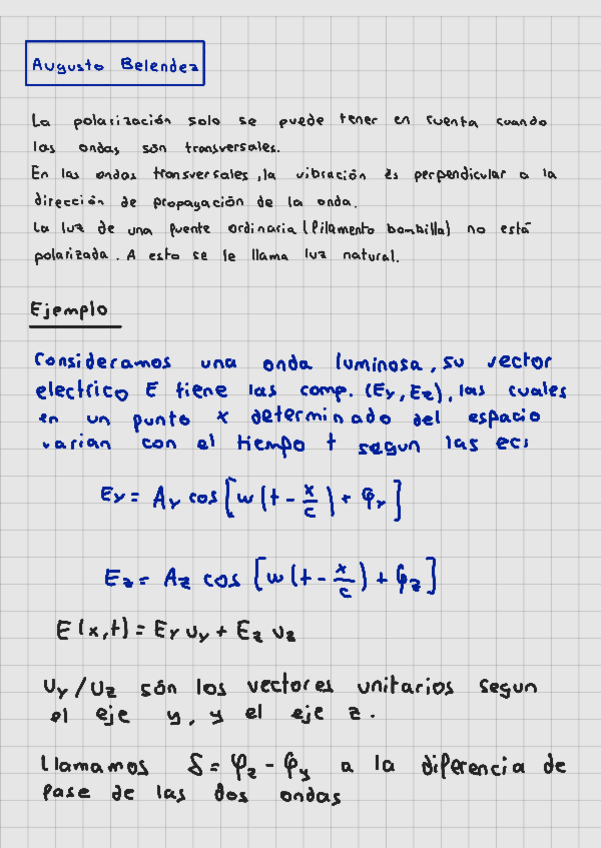 Augusto Belendez
La polarización solo se puede tener en cuenta cuando
las ondas son transversales.
En las ondas transversales, la vibración es perpendicular a la
dirección de propagación de la onda.
La luz de una fuente ordinaria (filamento bombilla) no está
polarizada. A esto se le llama luz natural.
Ejemplo
Consideramos una onda luminosa, su vector
electrico E tiene las comp. (Ey, Ez), las cuales
en un punto x determinado del espacio
varian con el tiempo t segun las ec:
Ey = Ay cos [w(t - x/c) + φy]
Ez = Az cos [w(t - x/c) + φz]
E(x,t) = Ey uy + Ez uz
Uy / Uz són los vectores unitarios segun
el eje y, y el eje z.
Llamamos δ = φz - φy a la diferencia de
fase de las dos ondas